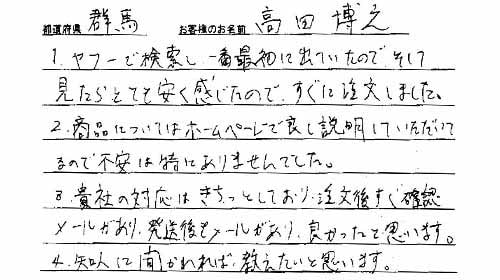 都道府県 群馬 お客様のお名前 高田 博之
1. ヤフーで検索し、一番最初に出ていたので、そして
見たらとても安く感じたので、すぐに注文しました。
2. 商品についてはホームページで良く説明していただいて
るので不安は特にありませんでした。
3. 貴社の対応はきちっとしており、注文後すぐ確認
メールがあり、発送後もメールがあり、良かったと思います。
4. 知人に聞かれれば、教えたいと思います。